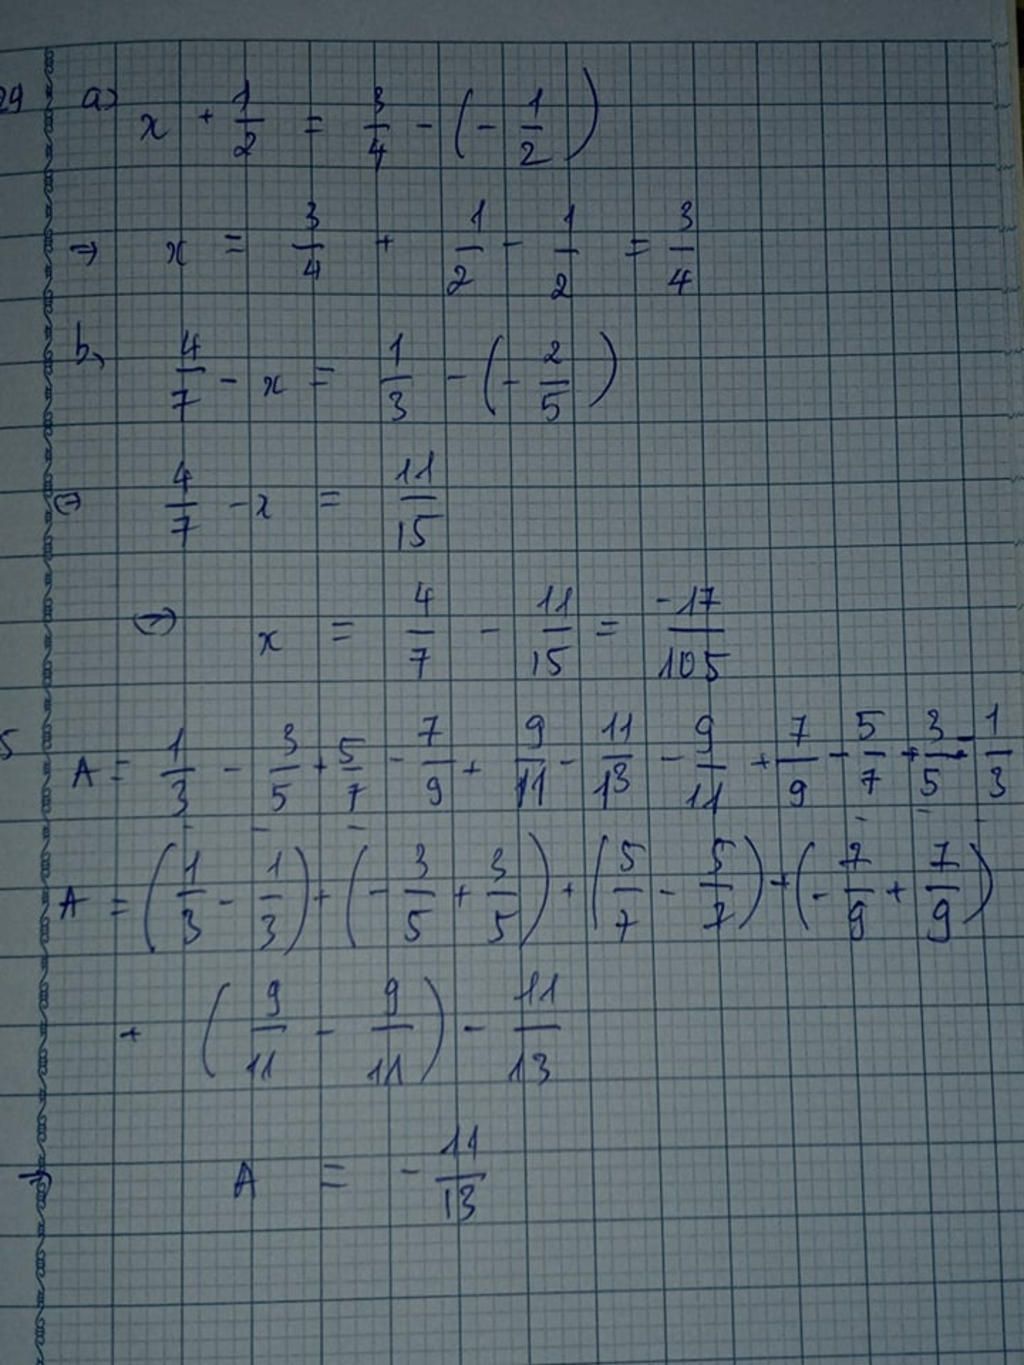 29 a) x + 1/2 = 3/4 - (- 1/2)
=> x = 3/4 + 1/2 - 1/2 = 3/4
b, 4/7 - x = 1/3 - (- 2/5)
(=) 4/7 - x = 11/15
(=) x = 4/7 - 11/15 = -17/105
5 A = 1/3 - 3/5 + 5/7 - 7/9 + 9/11 - 11/13 - 9/11 + 7/9 - 5/7 + 3/5 - 1/3
A = (1/3 - 1/3) + (- 3/5 + 3/5) + (5/7 - 5/7) + (- 7/9 + 7/9)
+ (9/11 - 9/11) - 11/13
=> A = - 11/13